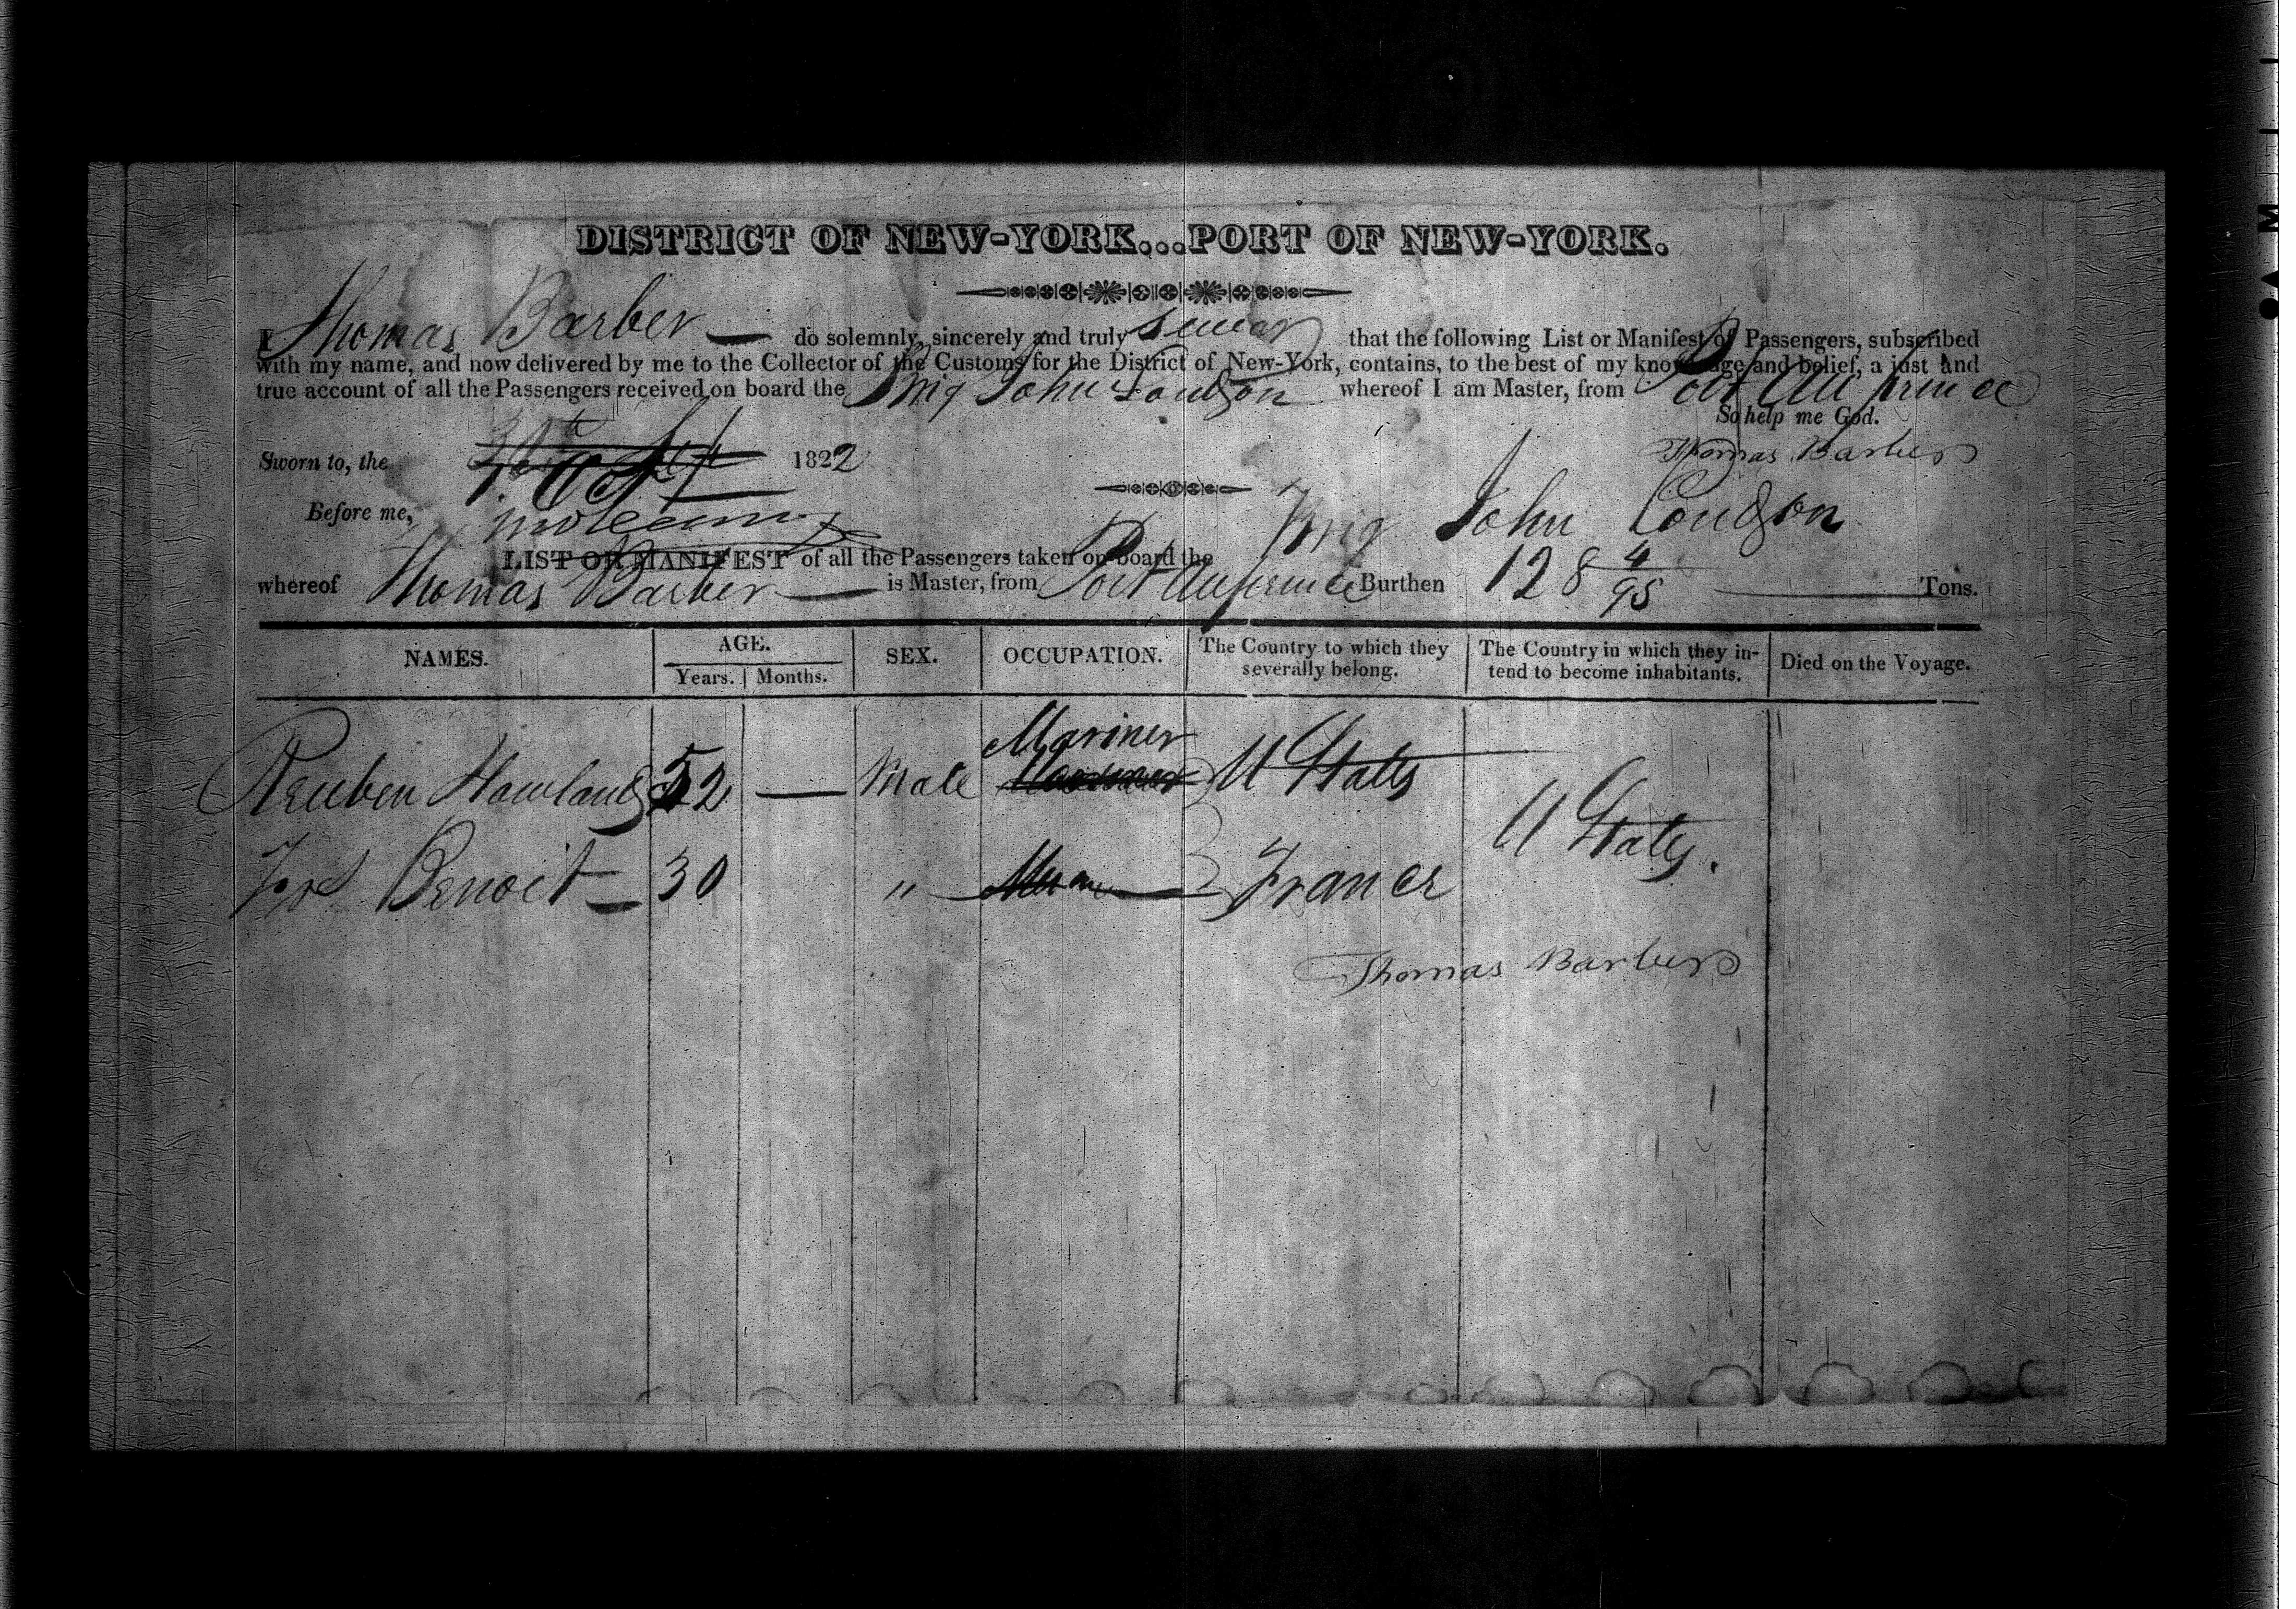 DISTRICT OF NEW-YORK...PORT OF NEW-YORK.
I Thomas Barber — do solemnly, sincerely and truly swear that the following List or Manifest of Passengers, subscribed
with my name, and now delivered by me to the Collector of the Customs for the District of New-York, contains, to the best of my knowledge and belief, a just and
true account of all the Passengers received on board the Brig John Loudon whereof I am Master, from Port Au prince
So help me God.
Thomas Barber
Sworn to, the 1. Oct 1822
Before me,
LIST OR MANIFEST of all the Passengers taken on board the Brig John Loudon
whereof Thomas Barber — is Master, from Port Au prince Burthen 128 4/95 Tons.
NAMES. AGE. Years. Months. SEX. OCCUPATION. The Country to which they severally belong. The Country in which they intend to become inhabitants. Died on the Voyage.
Reuben Howland 52 — Male Mariner U States U States.
Benoit — 30 " France
Thomas Barber